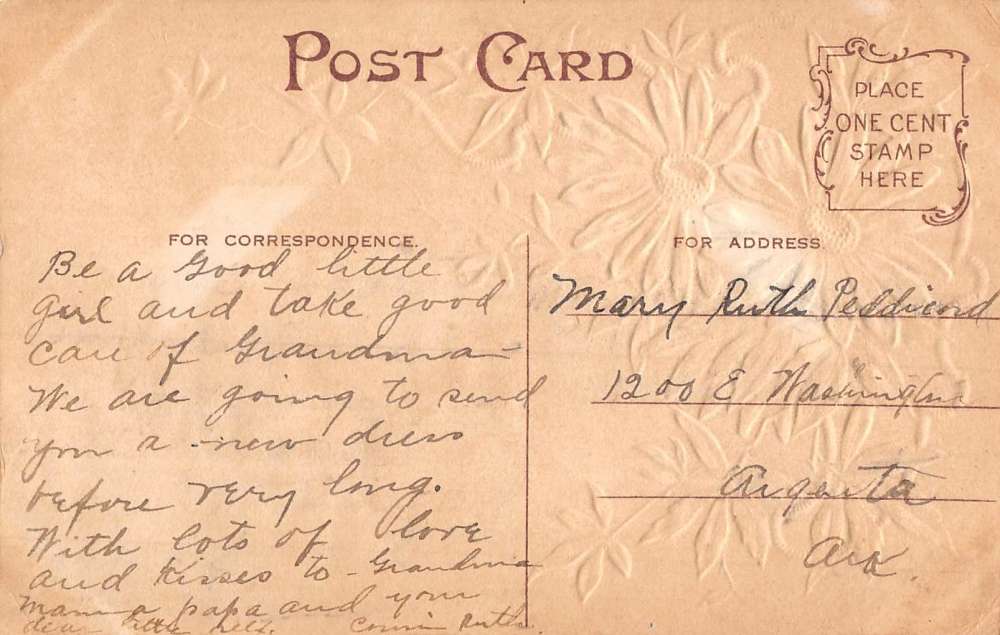 POST CARD
PLACE
ONE CENT
STAMP
HERE
FOR CORRESPONDENCE.
Be a Good little
girl and take good
care of Grandma-
We are going to send
you a new dress
before very long.
With lots of love
and Kisses to Grandma
Mamma papa and your
dear little self. Cousin Ruth.
FOR ADDRESS
Mary Ruth Peddicord
1200 E Washington
Argenta
Ark.